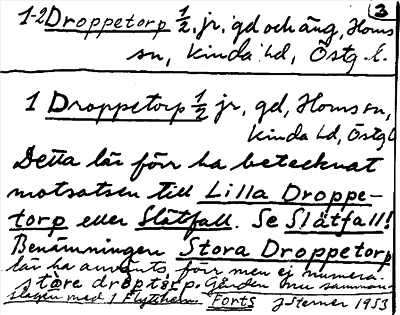 3
1-2 Droppetorp 1/2, jr, gd och äng, Horns
sn, Kinda hd, Östg. l.
1 Droppetorp 1/2 jr, gd, Horns sn,
Kinda hd, Östg l
Detta lär förr ha betecknat
motsatsen till Lilla Droppe-
torp eller Slätfall. Se Slätfall!
Benämningen Stora Droppetorp
lär ha använts förr men ej numera.
stòre dròptårp. Gården nu samman-
slagen med 1 Flyttshem. Forts J Sterner 1953